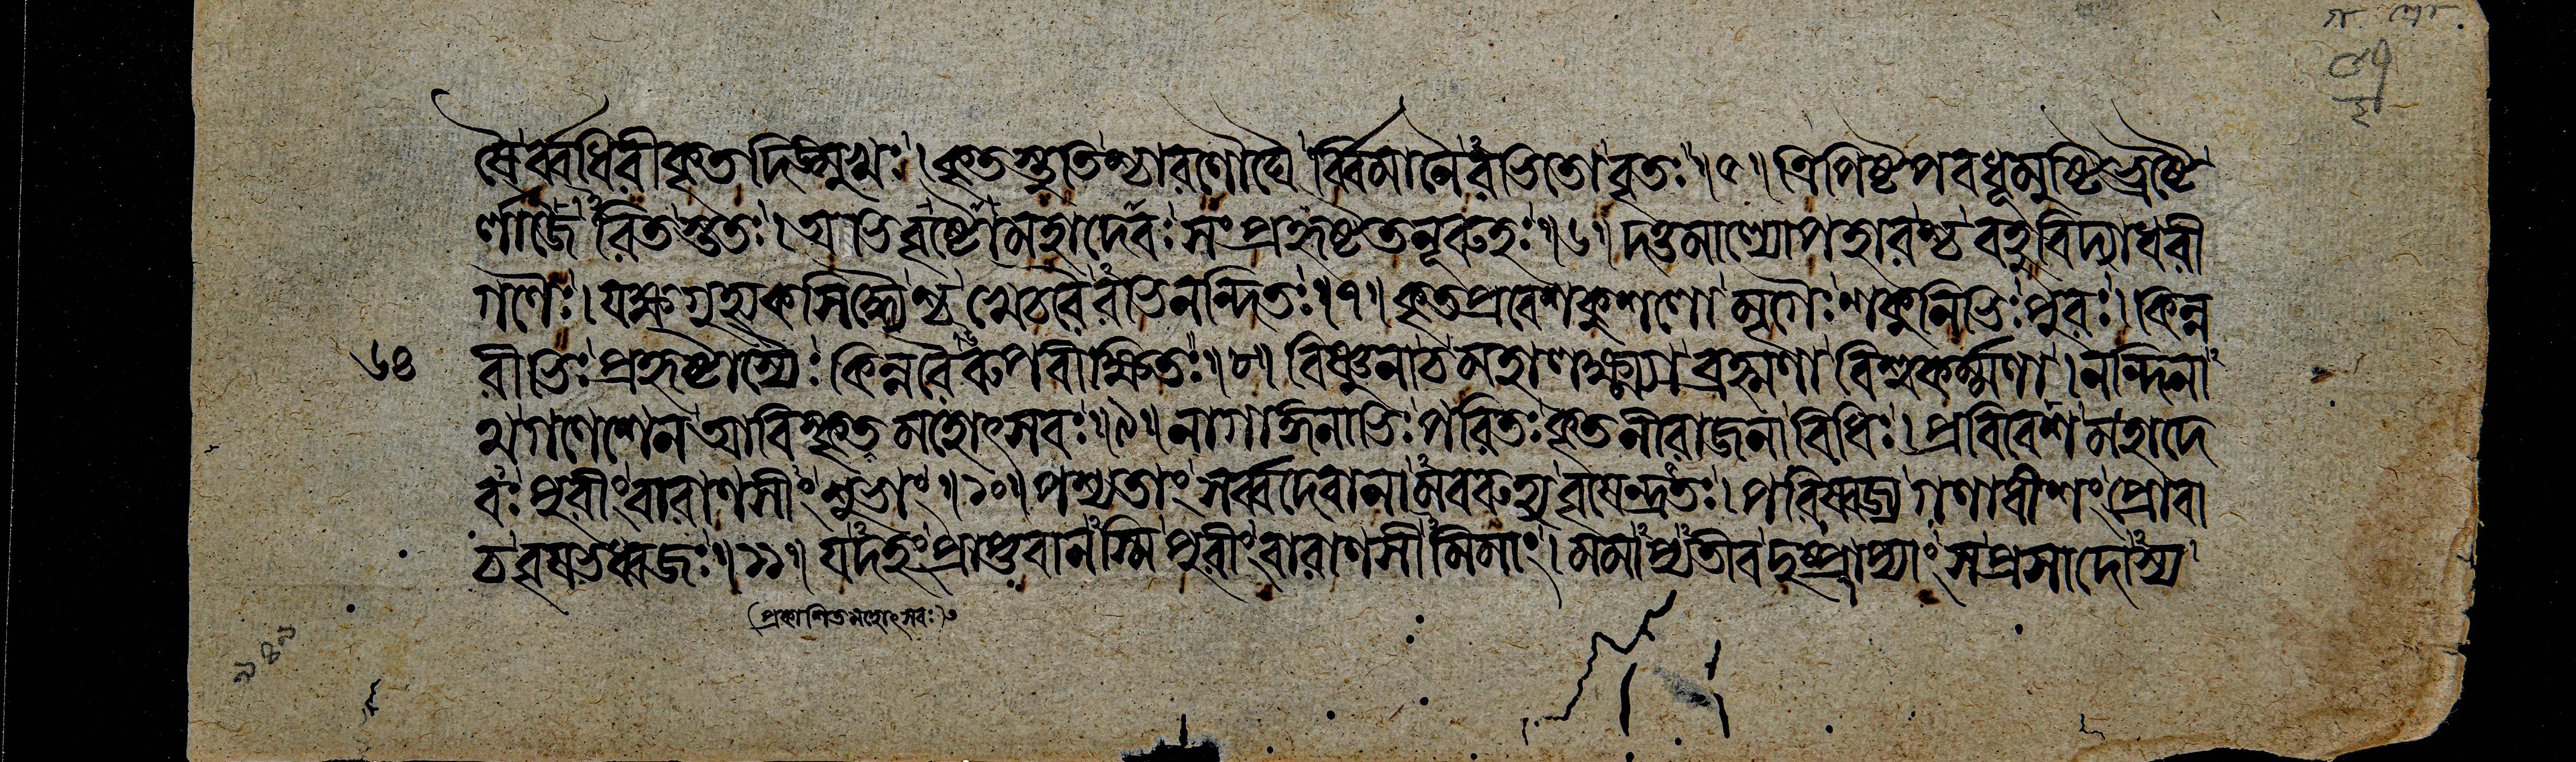 ষৈর্ব্বধিরীকৃতদিঙ্মুখঃ। কৃতস্তুতিশ্চারণৌঘৈর্ব্বিমানৈরভিতোবৃতঃ॥৫॥ ত্রিপিষ্টপবধূমুষ্টিভ্রষ্টৈ
র্লাজৈরিতস্ততঃ। অভিবৃষ্টোমহাদেবঃ সংপ্রহৃষ্টতনূরুহঃ॥৬॥ দত্তমাল্যোপহারশ্চ বহুবিদ্যাধরী
গণৈঃ। যক্ষগুহ্যকসিদ্ধৈশ্চ খেচরৈরভিনন্দিতঃ॥৭॥ কৃতপ্রবেশকুশলো মৃগৈঃ শকুনিভিঃ পুরঃ। কিন্ন
৬৪
রীভিঃ প্রহৃষ্টাস্যৈঃ কিন্নরৈরুপবীক্ষিতঃ॥৮॥ বিষ্ণুনাচ মহালক্ষ্ম্যা ব্রহ্মণা বিশ্বকর্ম্মণা। নন্দিনা
থ গণেশেন আবিষ্কৃতমহোৎসবঃ॥৯॥ নাগাঙ্গনাভিঃ পরিতঃ কৃতনীরাজনাবিধিঃ। প্রবিবেশ মহাদে
বঃ পুরীং বারাণসীং শুভাং॥১০॥ পশ্যতাং সর্ব্বদেবানামবরুহ্য বৃষেন্দ্রতঃ। পরিষ্বজ্য গণাধীশং প্রোবা
চ বৃষভধ্বজঃ॥১১॥ যদহং প্রাপ্তবানস্মি পুরীং বারাণসীমিমাং। মমাপ্যতীবদুষ্প্রাপ্যাং সপ্রসাদোস্য
(প্রকাশিতমহোৎসবঃ)